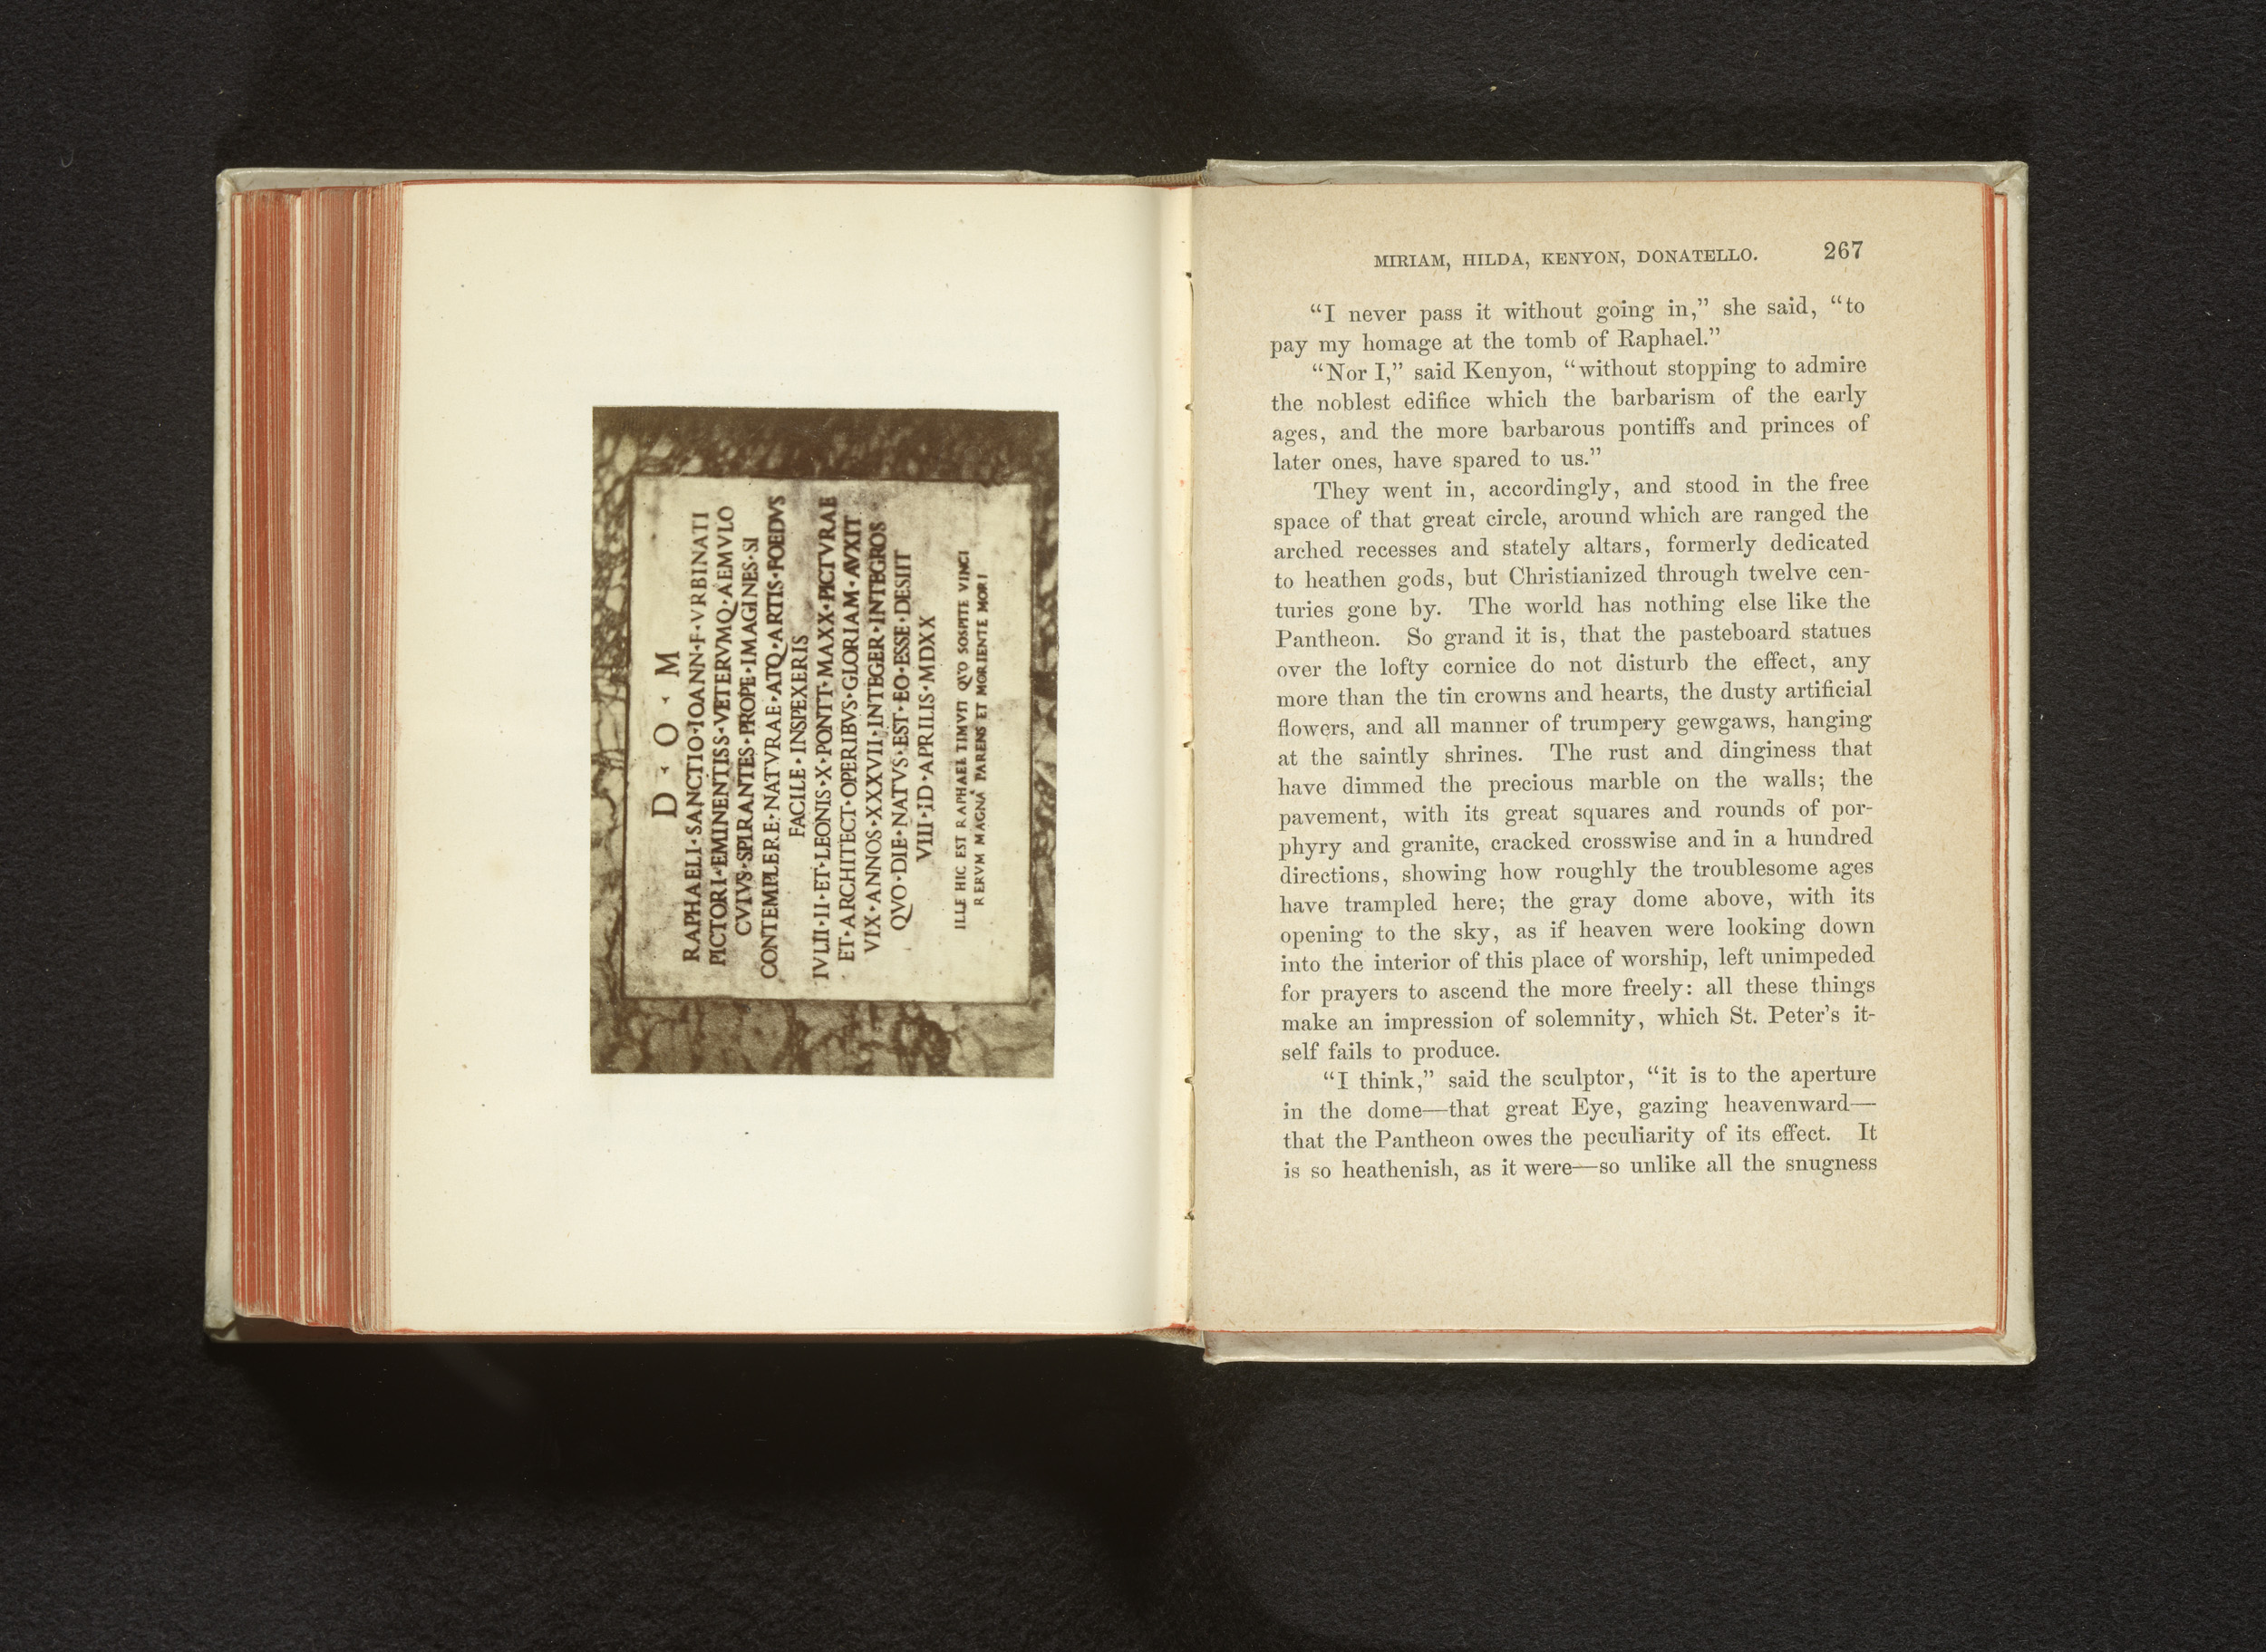 D · O · M
RAPHAELI·SANCTIO·IOANN·F·VRBINATI
PICTORI·EMINENTISS·VETERVMQ·AEMVLO
CVIVS·SPIRANTES·PROPE·IMAGINES·SI
CONTEMPLERE·NATVRAE·ATQ·ARTIS·FOEDVS
FACILE·INSPEXERIS
IVLII·II·ET·LEONIS·X·PONTT·MAXX·PICTVRAE
ET·ARCHITECT·OPERIBVS·GLORIAM·AVXIT
VIX·ANNOS·XXXVII·INTEGER·INTEGROS
QVO·DIE·NATVS·EST·EO·ESSE·DESIIT
VIII·ID·APRILIS·MDXX
ILLE HIC EST RAPHAEL TIMVIT QVO SOSPITE VINCI
RERVM MAGNA PARENS ET MORIENTE MORI
MIRIAM, HILDA, KENYON, DONATELLO. 267
“I never pass it without going in,” she said, “to
pay my homage at the tomb of Raphael.”
“Nor I,” said Kenyon, “without stopping to admire
the noblest edifice which the barbarism of the early
ages, and the more barbarous pontiffs and princes of
later ones, have spared to us.”
They went in, accordingly, and stood in the free
space of that great circle, around which are ranged the
arched recesses and stately altars, formerly dedicated
to heathen gods, but Christianized through twelve cen-
turies gone by. The world has nothing else like the
Pantheon. So grand it is, that the pasteboard statues
over the lofty cornice do not disturb the effect, any
more than the tin crowns and hearts, the dusty artificial
flowers, and all manner of trumpery gewgaws, hanging
at the saintly shrines. The rust and dinginess that
have dimmed the precious marble on the walls; the
pavement, with its great squares and rounds of por-
phyry and granite, cracked crosswise and in a hundred
directions, showing how roughly the troublesome ages
have trampled here; the gray dome above, with its
opening to the sky, as if heaven were looking down
into the interior of this place of worship, left unimpeded
for prayers to ascend the more freely: all these things
make an impression of solemnity, which St. Peter’s it-
self fails to produce.
“I think,” said the sculptor, “it is to the aperture
in the dome—that great Eye, gazing heavenward—
that the Pantheon owes the peculiarity of its effect. It
is so heathenish, as it were—so unlike all the snugness